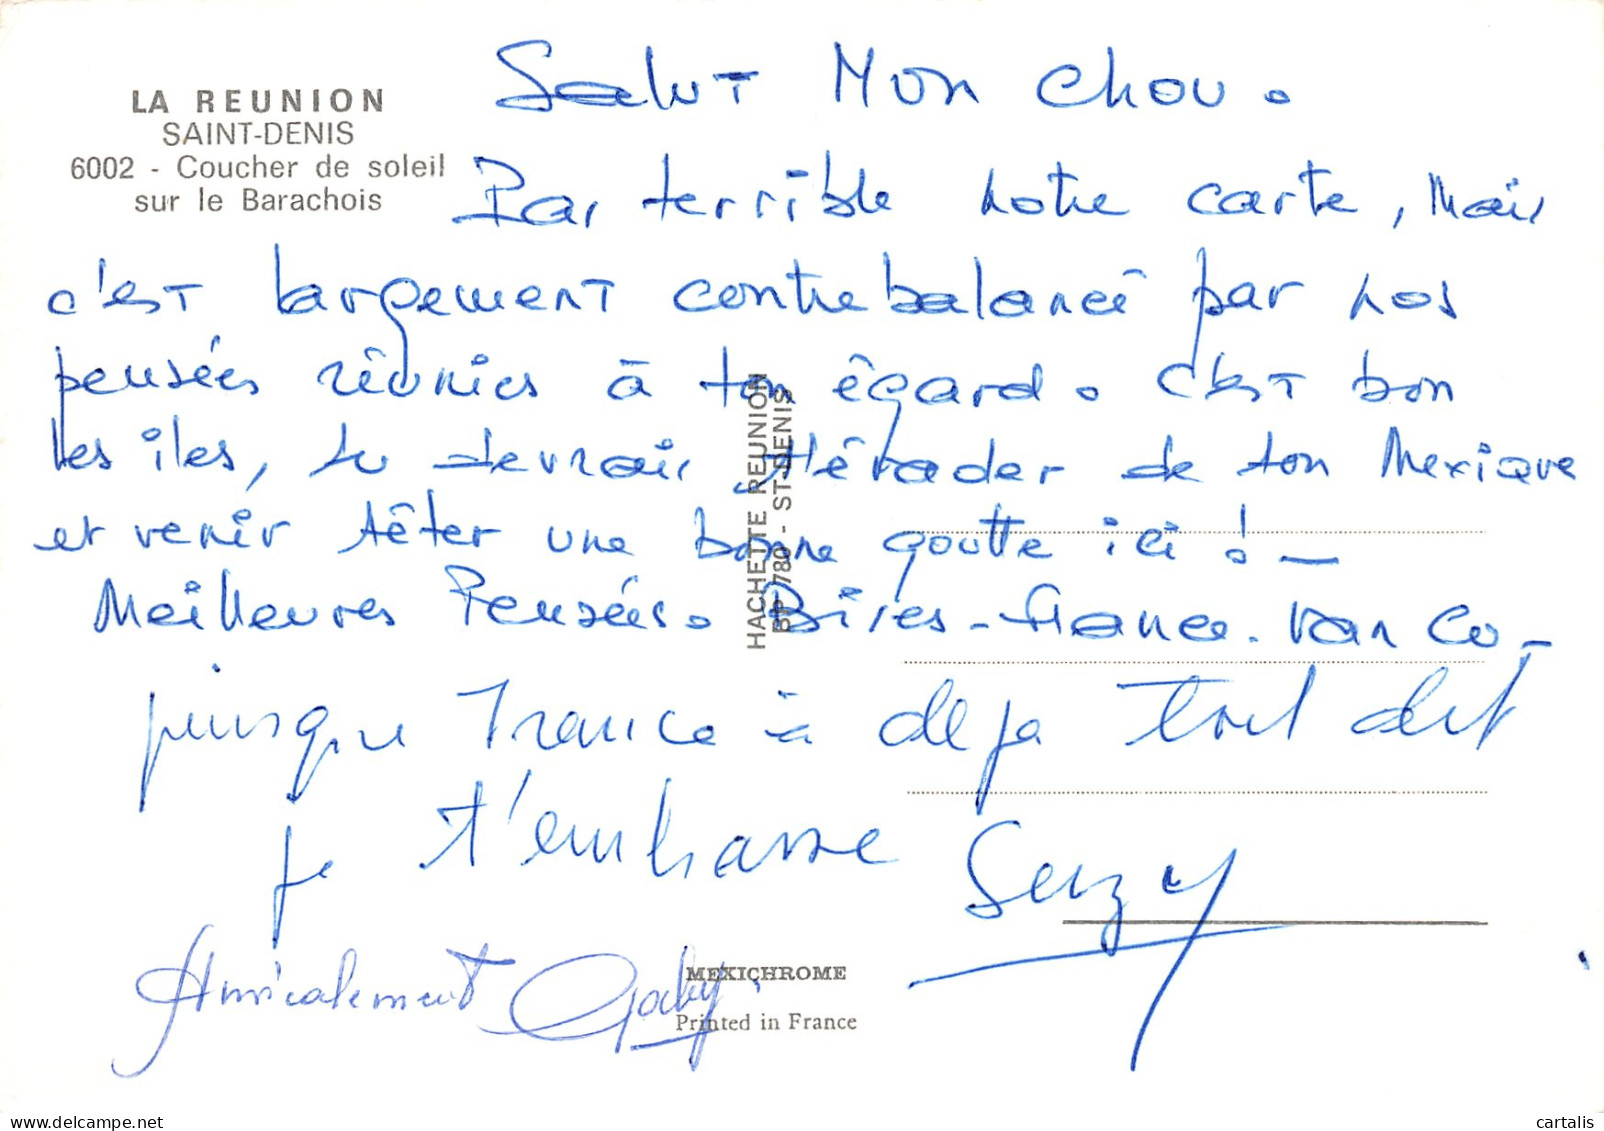 LA REUNION
SAINT-DENIS
6002 - Coucher de soleil
sur le Barachois
Salut Mon chou.
Pas terrible notre carte, Mais
c'est largement contrebalancé par nos
pensées réunies à ton égard. C'est bon
les iles, tu devrais t'évader de ton Mexique
et venir têter une bonne goutte ici ! -
Meilleures Pensées. Bises - France. Van Co -
puisque France à deja tout dit
je t'embrasse Suzy
Amicalement Gaby.
HACHETTE REUNION
BP 780 - ST-DENIS
MEXICHROME
Printed in France
delcampe.net
cartalis